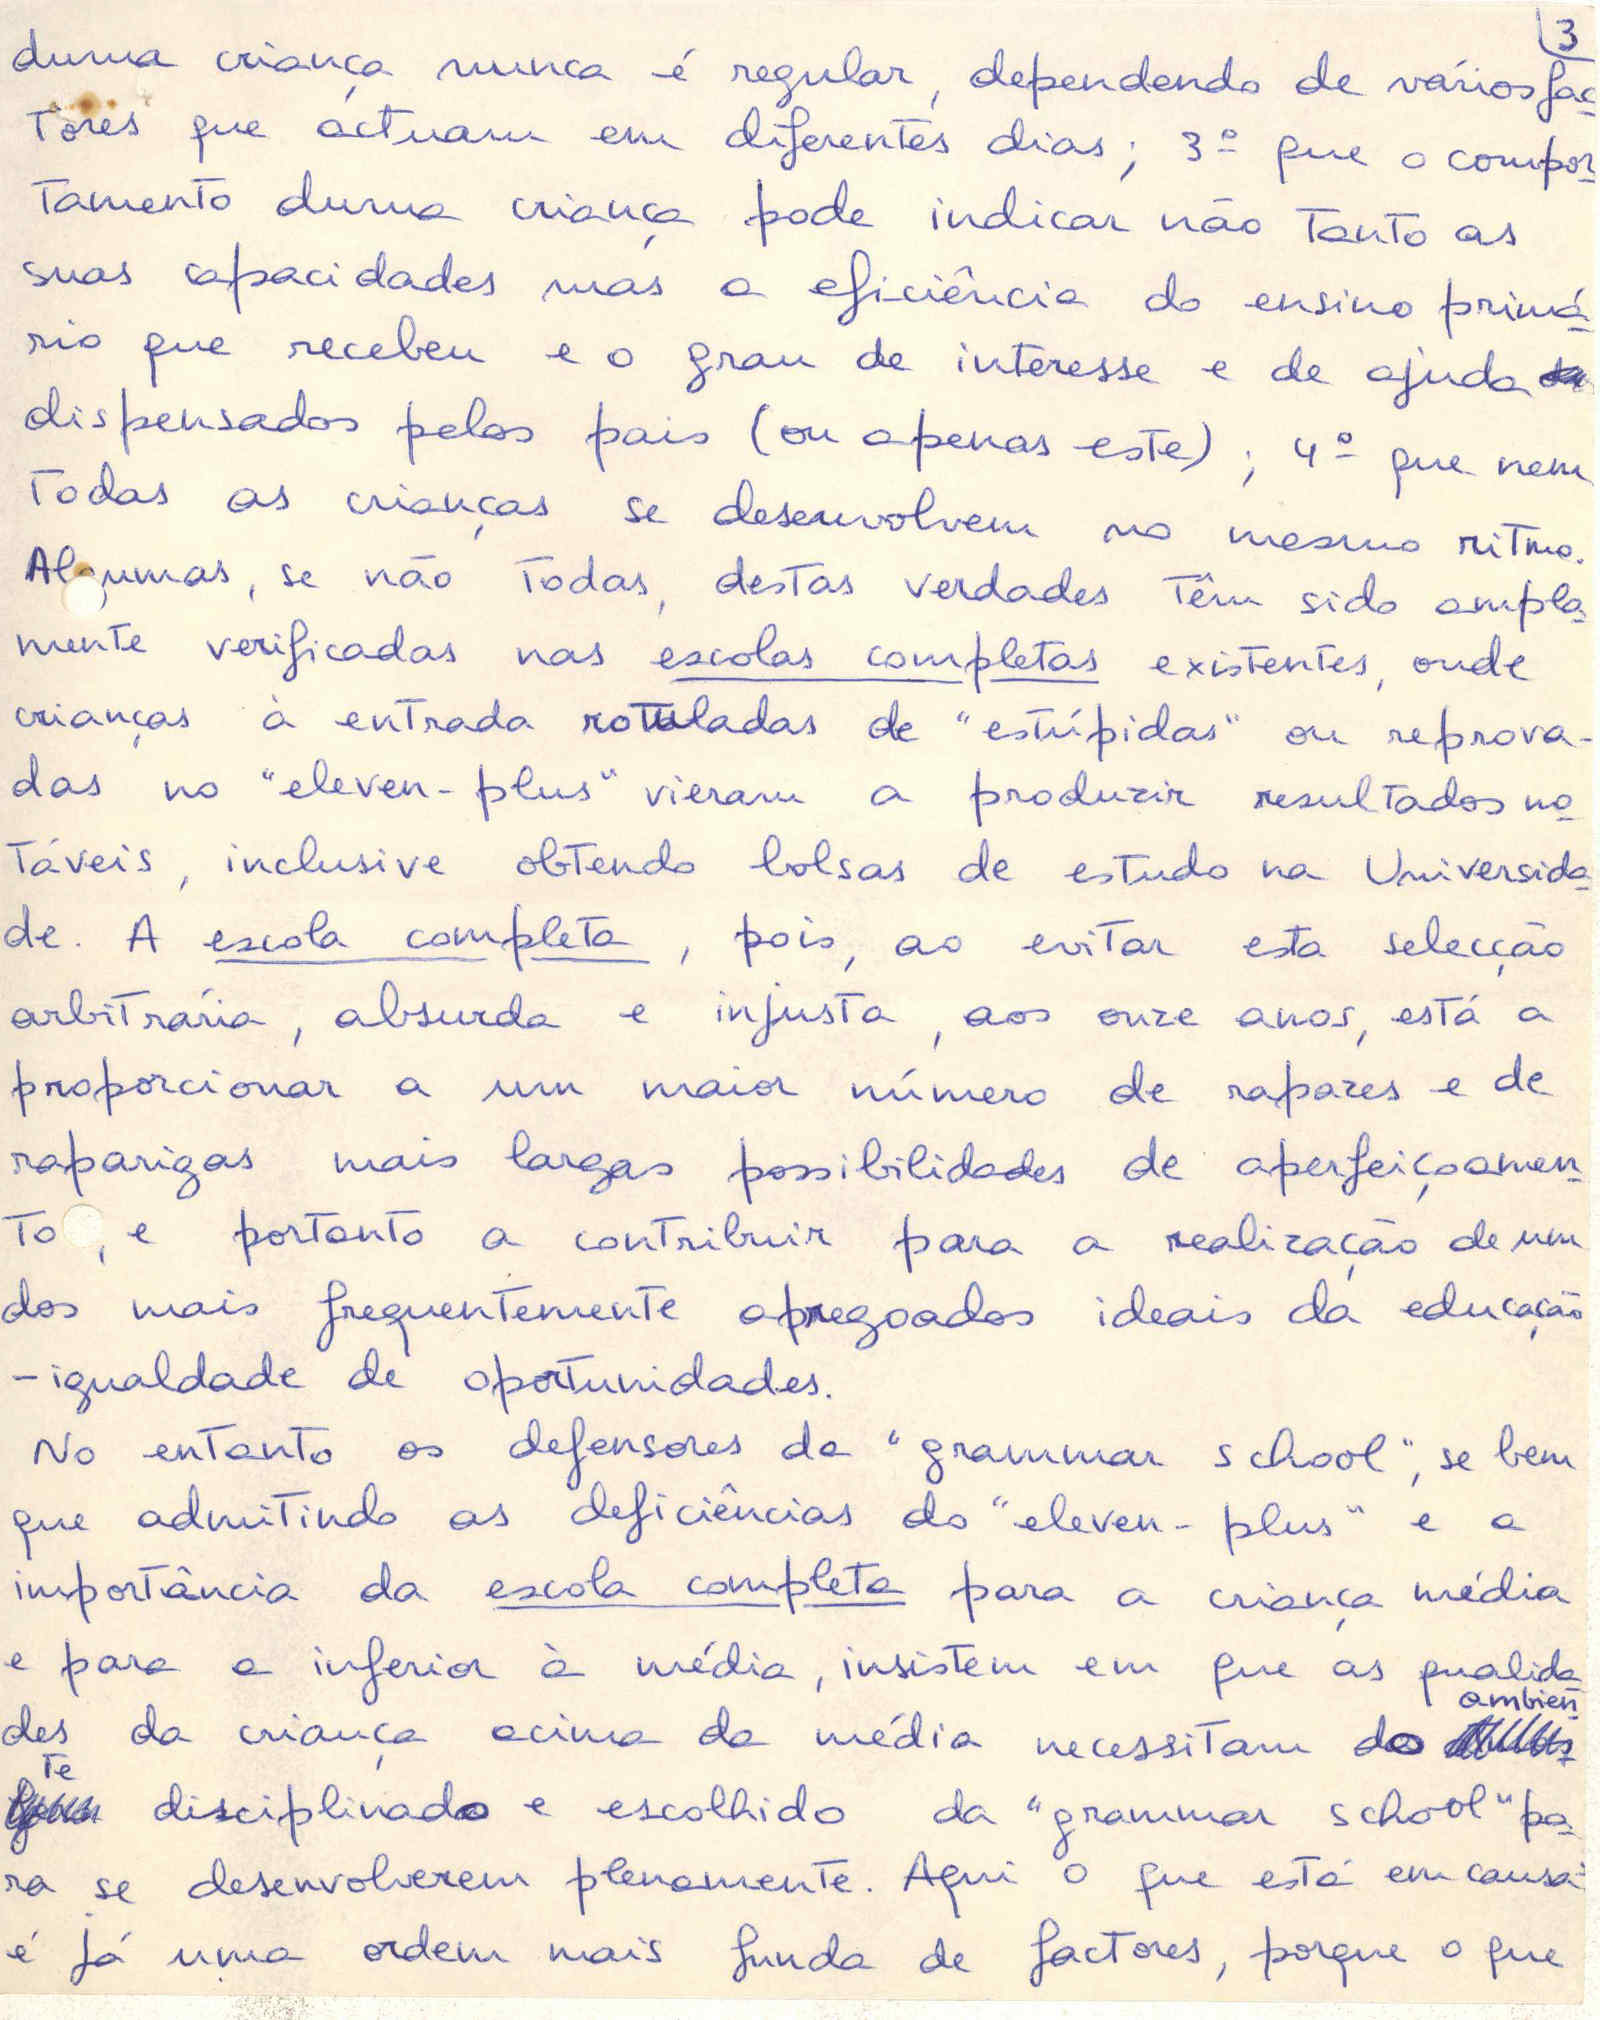 3
duma criança nunca é regular, dependendo de vários fac-
tores que actuam em diferentes dias; 3º que o compor-
tamento duma criança pode indicar não tanto as
suas capacidades mas a eficiência do ensino primá-
rio que recebeu e o grau de interesse e de ajuda
dispensados pelos pais (ou apenas este); 4º que nem
todas as crianças se desenvolvem no mesmo ritmo.
Algumas, se não todas, destas verdades têm sido ampla-
mente verificadas nas escolas completas existentes, onde
crianças à entrada rotuladas de "estúpidas" ou reprova-
das no "eleven-plus" vieram a produzir resultados no-
táveis, inclusive obtendo bolsas de estudo na Universida-
de. A escola completa, pois, ao evitar esta selecção
arbitrária, absurda e injusta, aos onze anos, está a
proporcionar a um maior número de rapazes e de
raparigas mais largas possibilidades de aperfeiçoamen-
to, e portanto a contribuir para a realização de um
dos mais frequentemente apregoados ideais da educação
-igualdade de oportunidades.
No entanto os defensores da "grammar school", se bem
que admitindo as deficiências do "eleven-plus" e a
importância da escola completa para a criança média
e para a inferior à média, insistem em que as qualida-
des da criança acima da média necessitam do ambien-
te disciplinado e escolhido da "grammar school" pa-
ra se desenvolverem plenamente. Aqui o que está em causa
é já uma ordem mais funda de factores, porque o que